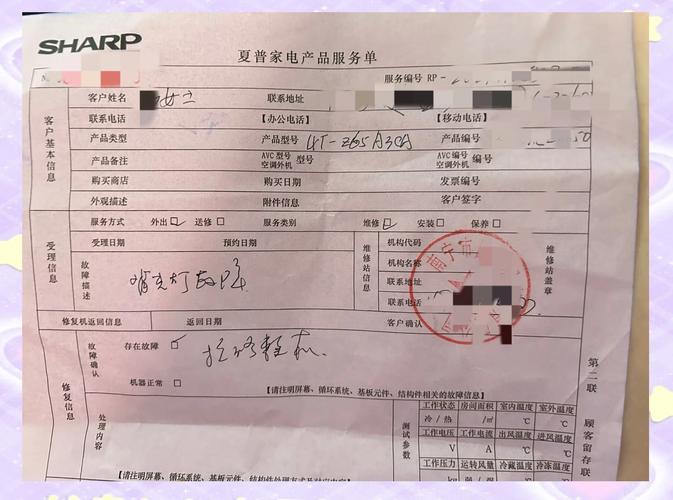 SHARP
夏普家电产品服务单
服务编号 RP -
客户基本信息
客户姓名 女士 联系地址
联系电话 【办公电话】 【移动电话】
产品类型 产品型号 产品编号
产品备注 AVC型号 空调外机 型号 AVC编号 空调外机 编号
购买商店 购买日期 发票编号
外观描述 附件信息 客户签字
受理信息
服务方式 外出 送修 服务类别 维修 安装 保养
受理日期 预约日期
故障描述 背光灯故障
维修站信息
机构代码
机构名称
联系地址
联系电话
维修站盖章
宁市
修复机返回信息 返回日期 客户确认
修复信息
故障确认 存在故障
机器正常
【请注明屏幕、循环系统、基板元件、结构件相关的故障信息】
处理内容
测试参数
工作状态 房间面积 室内温度 室外温度
冷/热 /㎡ ℃ ℃
工作电压 工作电流 出风温度 进风温度
V A ℃ ℃
工作压力 运转风量 冷藏温度 冷冻温度
【请注明屏幕、循环系统、基板元件、结构件处理方式及对应内容】
第二联 顾客留存联